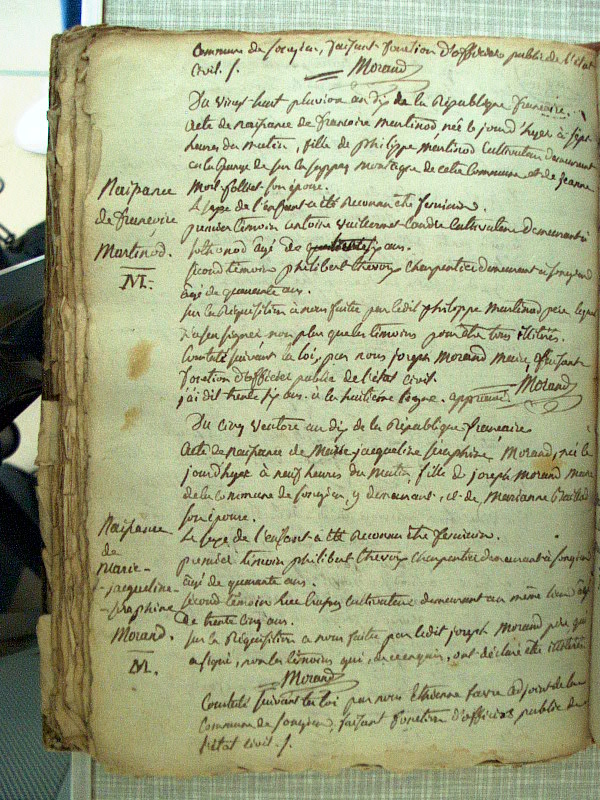 Commune de Songieu, faisant fonction d'officier public de l'état
civil.
Morand
Du vingt huit pluviose an dix de la République françoise.
Acte de naissance de françoise Martinod née le jour d'hyer à sept
heures du matin, fille de philippe Martinod Cultivateur demeurant
montagne de cette Commune et de jeanne
son épouse.
Naissance
de françoise
Martinod.
M.
Le sexe de l'enfant a été reconnu être feminin.
premier témoin antoine cultivateur demeurant à
sothonod agé de ans.
second témoin philibert thevoz charpentier demeurant à songieu
agé de quarante ans.
sur la Réquisition à nous faitte par ledit philippe Martinod père lequel
n'a sçu signer non plus que les témoins pour être tous illiterés.
Constaté suivant la loi, par nous joseph Morand Maire, faisant
fonction d'officier public de l'état civil.
j'ai dit trente six ans. à la huitieme ligne. approuvé
Morand
Du cinq ventose an dix de la République françoise
Acte de naissance de Marie jacqueline séraphine Morand, née le
jour d'hyer à neuf heures du Matin, fille de joseph Morand maire
de la Commune de songieu, y demeurant, et de Marianne
son épouse.
Naissance
de
Marie-
-jacqueline-
-séraphine
Morand.
M.
Le sexe de l'enfant a été reconnu être feminin.
premier témoin philibert thevoz charpentier demeurant à songieu
agé de quarante ans.
second témoin cultivateur demeurant au même lieu agé
de trente cinq ans.
sur la Réquisition a nous faitte par ledit joseph Morand père qui
a signé, non les témoins qui, de ce enquis, ont déclaré être illiterés.
Morand
Constaté suivant la loi par nous Etienne favre adjoint de la
Commune de songieu, faisant fonction d'officier public de
l'état civil.